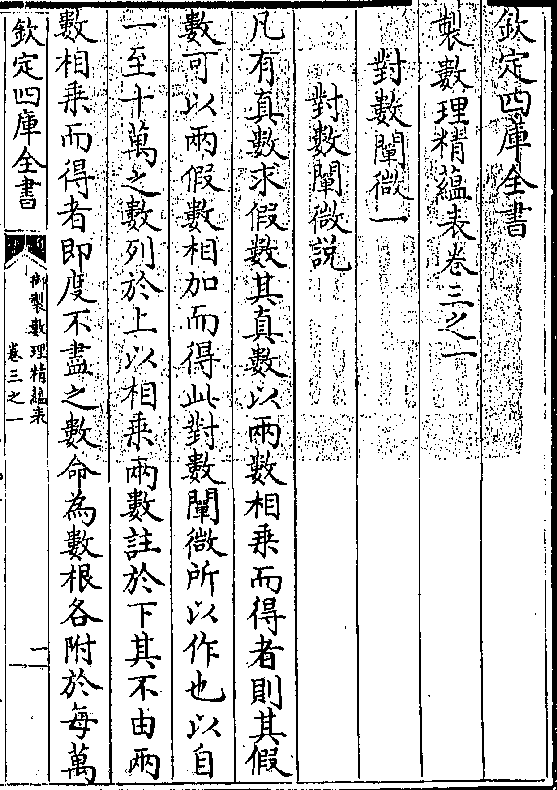 欽定四庫全書
製數理精蘊表卷三之一
對數闡微一
對數闡微說
凡有真數求假數其真數以兩數相乗而得者則其假
數可以兩假數相加而得此對數闡微所以作也以自
一至十萬之數列於上以相乗兩數註於下其不由兩
數相乗而得者即度不盡之數命為數根各附於每萬
欽定四庫全書
御製數理精蘊表
卷三之一
二